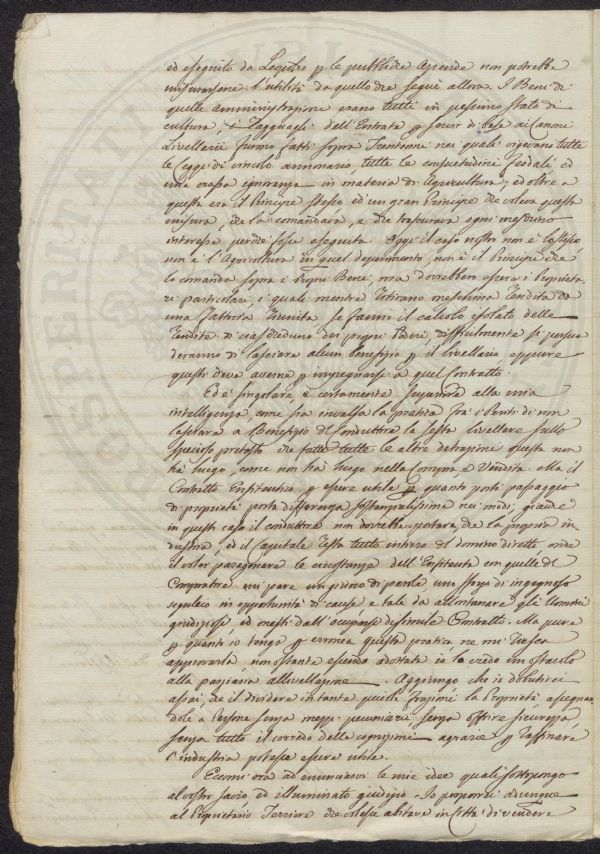 ed eseguito da Leopoldo p le pubbliche Aziende non potrebbe
misurarsene l'utilità da quello che seguì allora. I Beni di
quelle Amministrazione erano tutti in pessimo stato di
cultura, i ragguagli dell'Entrate p servir di base ai Canoni
Livellari furono fatti sopra quali vigevano tutte
le Leggi di vincolo annonario, tutte le consuetudini feudali ed
una crassa ignoranza in materia di Agricultura; ed oltre a
questo era il Principe stesso ed un gran Principe che voleva questa
misura, che la comandava, e che trascurava ogni
interesse perchè fosse eseguita. Oggi il caso nostro non è lo stesso
non è l'Agricoltura in quel deperimento, non è il Principe che
lo comanda sopra i proprj Beni, ma dovrebbero essere i Proprieta
rj particolari, i quali mentre ritirano meschina rendita da
una Fattoria riunita se fanno il calcolo isolato delle
rendite di ciascheduno dei proprj Poderi, difficilmente si persua
deranno di lasciare alcun benefizio p il livellario, eppure
questi deve averne p impegnarsi a quel Contratto.
Ed è singolare, e certamente superiore alla mia
intelligenza come sia invalsa la pratica fra i Periti di non
lasciare a Benefizio del conduttore la sesta livellare sullo
specioso pretesto che fatte tutte le altre detrazioni questa non
ha luogo, come non ha luogo nella Compra e Vendita. Ma il
Contratto Enfiteutico p essere utile p quanto porti passaggio
di proprietà porta differenza sostanzialissima nei modi, giacchè
in questo caso il conduttore non dovrebbe portare che la propria in
dustria, ed il Capitale resta tutto intiero al domino diretto, onde
il voler paragonare le circostanze dell'Enfiteuta con quelle del
Compratore mi pare un giuoco di parole, uno sforzo di ingegnoso
seguace in opportunità di cause, e tale da allontanare gli Uomini
giudiziosi ed onesti dall'occuparsi di simile Contratto. Ma pure
p quanto io tengo p erronea questa pratica, nè mi riesca
approvarla, nonostante essendo adottata io la credo un ostacolo
alla passiva allivellazione. Aggiungo che io dubiterei
assai, che il dividere in tante piccole frazioni la Proprietà assegnan
dole a Persone senza mezzi pecuniarj, senza offrire sicurezza,
senza tutto il corredo delle cognizioni agrarie p raffinare
l'industria potesse essere utile.
Eccomi ora ad enunciarvi le mie idee quali sottopongo
al vostro savio ed illuminato giudizio. Io proporrei adunque
al Proprietario Terriere che volesse abitare in Città di vendere